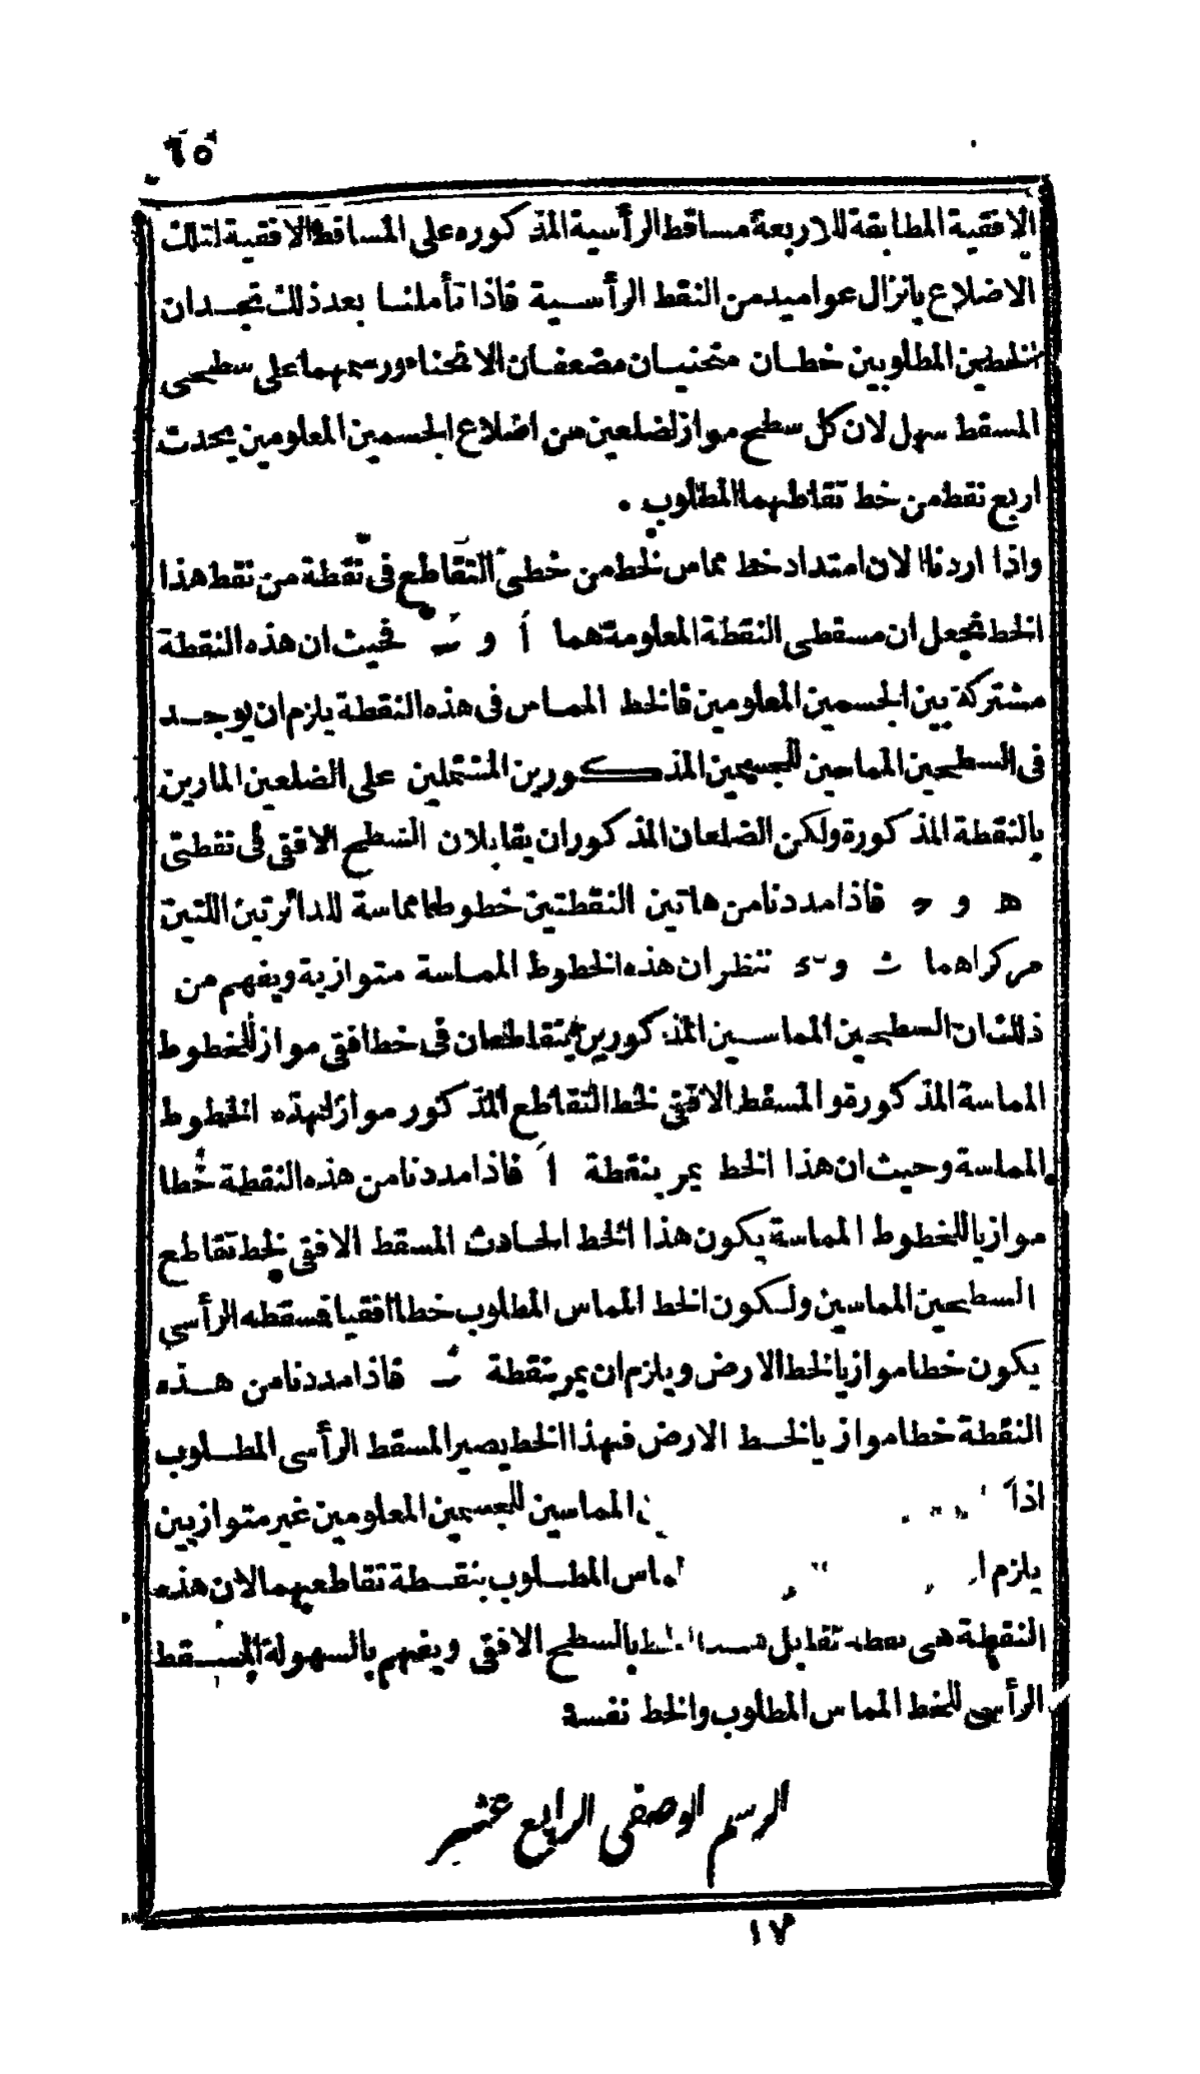 ٦٥
الافقية المطابقة للاربعة مساقط الرأسية المذكوره على المساقط الافقية لتلك
الاضلاع بانزال عواميد من النقط الرأسية فاذا تأملنا بعد ذلك نجد ان
الخطين المطلوبين خطان منحنيان مضعفان الانحناء ورسمهما على سطحى
المسقط سهل لان كل سطح مواز لضلعين من اضلاع الجسمين المعلومين يحدث
اربع نقط من خط تقاطهما المطلوب .
واذا اردنا الان امتداد خط مماس لخط من خطى التقاطع فى نقطة من نقط هذا
الخط نجعل ان مسقطى النقطة المعلومة هما أ و فحيث ان هذه النقطة
مشتركة بين الجسمين المعلومين فالخط المماس فى هذه النقطة يلزم ان يوجد
فى السطحين المماسين للجسمين المذكورين المشتملين على الضلعين المارين
بالنقطة المذكورة ولكن الضلعان المذكوران يقابلان السطح الافقى فى نقطتى
ه و ح فاذا مددنا من هاتين النقطتين خطوطا مماسة للدائرتين اللتين
مركزاهما ث و ننظر ان هذه الخطوط المماسة متوازية ويفهم من
ذلك ان السطحين المماسين المذكورين يتقاطعان فى خط افقى مواز للخطوط
المماسة المذكورة والمسقط الافقى لخط التقاطع المذكور مواز لهذه الخطوط
المماسة وحيث ان هذا الخط يمر بنقطة أ فاذا مددنا من هذه النقطة خطا
موازيا للخطوط المماسة يكون هذا الخط الحادث المسقط الافقى لخط تقاطع
السطحين المماسين ولكون الخط المماس المطلوب خطا افقيا فسقطه الرأسى
يكون خطا موازيا لخط الارض ويلزم ان يمر بنقطة فاذا مددنا من هذه
النقطة خطا موازيا لخط الارض فهذا الخط يصير المسقط الرأسى المطلوب
اذا المماسين للجسمين المعلومين غير متوازيين
يلزم المطلوب بنقطة تقاطعهما لان هذه
النقطة هى تقابل بالسطح الافقى ويفهم بالسهولة المسقط
الرأسى للخط المماس المطلوب والخط نفسة
الرسم الوصفى الرابع عشر
١٧